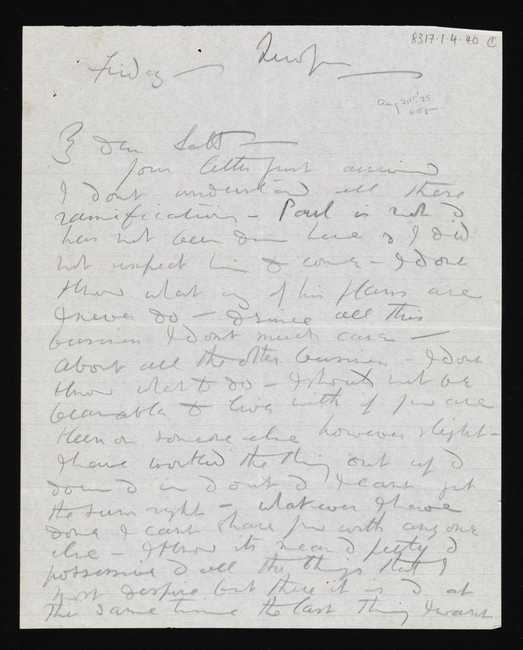 8317.1.4.40 ①
Friday —
Aug 21st '25
My dear Seb —
Your letter just arrived
I dont understand all these
ramifications — Paul is not &
has not been down here & I did
not expect him to come — I dont
know what any of his plans are
I never do — & since all this
business I dont much care —
About all the other business — I dont
know what to do — I should not be
bearable to live with if you are
keen on someone else however slight —
I have worked the thing out up &
down & in & out & I cant get
the sum right — whatever I have
done I cant share you with any one
else — I know its mean & petty &
possessive & all the things that I
most despise but there it is & at
the same time the last thing I want